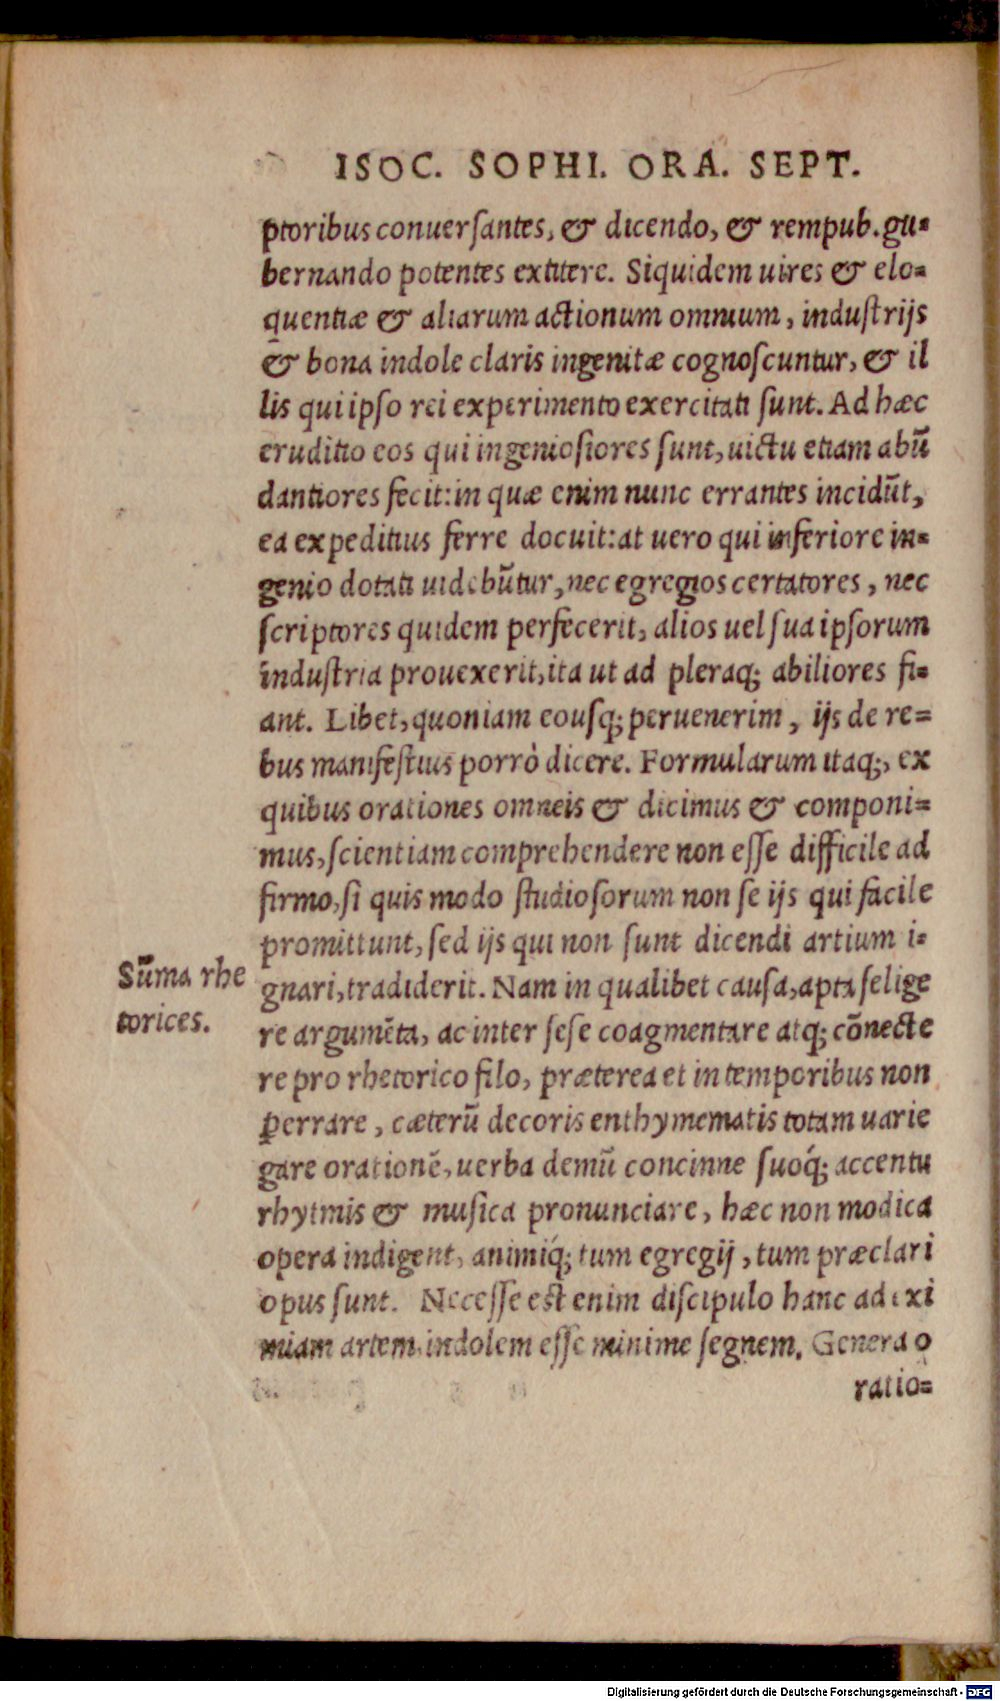 ISOC. SOPHI. ORA. SEPT.
ptoribus conuerſantes, & dicendo, & rempub. gu-
bernando potentes extitere. Siquidem uires & elo-
quentiæ & aliarum actionum omnium, induſtrijs
& bona indole claris ingenitæ cognoſcuntur, & il
lis qui ipſo rei experimento exercitati ſunt. Ad hæc
eruditio eos qui ingenioſiores ſunt, uictu etiam abū
dantiores fecit: in quæ enim nunc errantes incidūt,
ea expeditius ferre docuit: at uero qui inferiore in-
genio dotati uidebūtur, nec egregios certatores, nec
ſcriptores quidem perfecerit, alios uel ſua ipſorum
induſtria prouexerit, ita ut ad pleraq; abiliores fi-
ant. Libet, quoniam eouſq; peruenerim, ijs de re-
bus manifeſtius porrò dicere. Formularum itaq;, ex
quibus orationes omneis & dicimus & componi-
mus, ſcientiam comprehendere non eſſe difficile ad
firmo, ſi quis modo ſtudioſorum non ſe ijs qui facile
promittunt, ſed ijs qui non ſunt dicendi artium i-
Sūma rhe
torices.
gnari, tradiderit. Nam in qualibet cauſa, apta ſelige
re argumēta, ac inter ſeſe coagmentare atq; cōnecte
re pro rhetorico filo, præterea et in temporibus non
ꝑerrare, cæterū decoris enthymematis totam uarie
gare orationē, uerba demū concinne ſuoq́; accentu
rhytmis & muſica pronunciare, hæc non modica
opera indigent, animiq́; tum egregij, tum præclari
opus ſunt. Neceſſe eſt enim diſcipulo hanc ad exi
miam artem indolem eſſe minime ſegnem. Genera o
ratio-
Digitalisierung gefördert durch die Deutsche Forschungsgemeinschaft - DFG